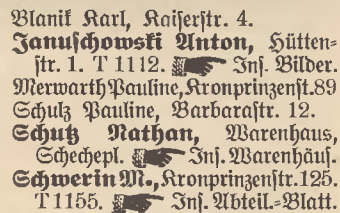 Blanik Karl, Kaiserstr. 4.
Januschowski Anton, Hütten=
str. 1. T 1112. ☛ Ins. Bilder.
Merwarth Pauline, Kronprinzenst. 89
Schulz Pauline, Barbarastr. 12.
Schutz Nathan, Warenhaus,
Schechepl. ☛ Ins. Warenhäus.
Schwerin M., Kronprinzenstr. 125.
T 1155. ☛ Ins. Abteil.=Blatt.